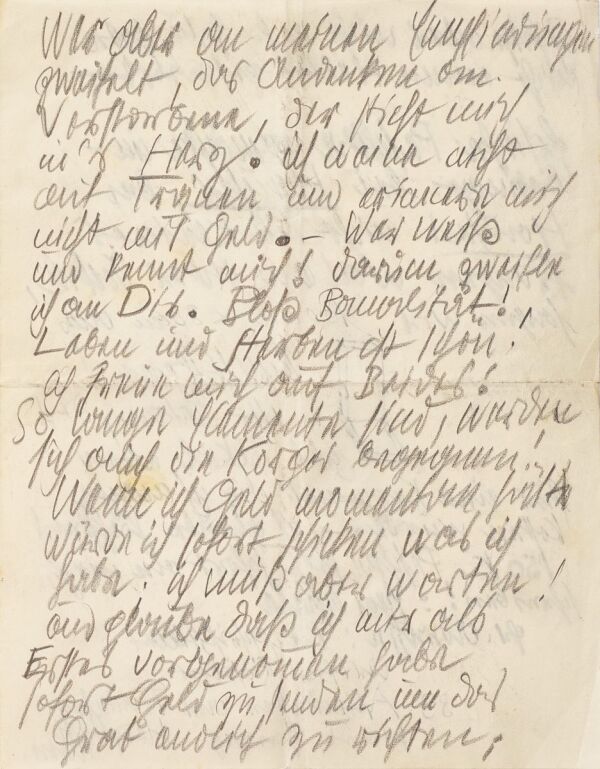 Wer aber an meinen Empfindungen
zweifelt, das Andenken am.
Verstorbene, der sticht mich
in's Herz. ich weine nicht
mit Tränen und erinnere mich
nicht mit Geld. – Wer weiß
und kennt mich? darum zweifle
ich an Dir. Bloß Banalität!
Leben und Sterben ist schön!
ich freue mich auf Beides!
So lange Elemente sind, werden
sich auch die Körper begegnen.
Wenn ich Geld momentan hätte
würde ich sofort schicken was ich
habe. ich muß aber warten!
und glaube daß ich mir als
Erstes vorgenomen habe
sofort Geld zu senden um das
Grab endlich zu richten,